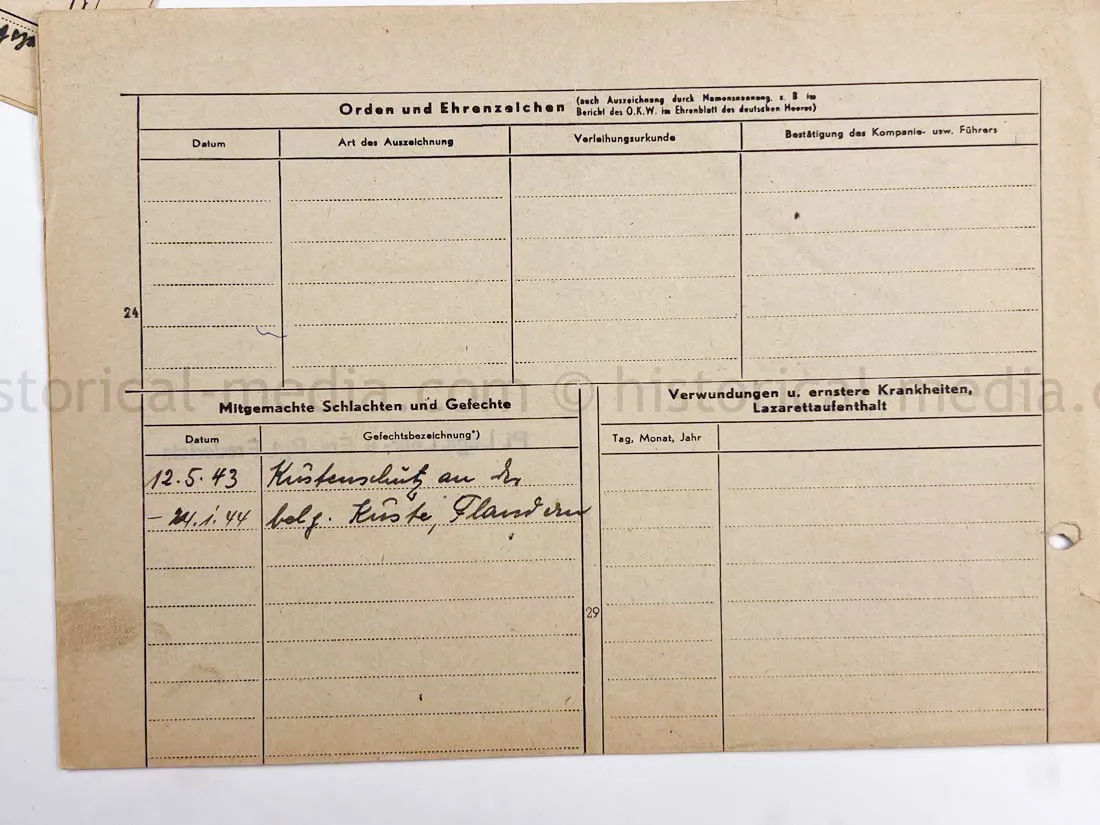 Orden und Ehrenzeichen (auch Auszeichnung durch Namensnennung, z. B im
Bericht des O.K.W. im Ehrenblatt des deutschen Heeres)
Datum
Art der Auszeichnung
Verleihungsurkunde
Bestätigung des Kompanie- usw. Führers
24
historical-media.com © historical-media.com
Mitgemachte Schlachten und Gefechte
Datum
Gefechtsbezeichnung*)
12.5.43 Küstenschutz an der
belg. Küste, Flandern
Verwundungen u. ernstere Krankheiten,
Lazarettaufenthalt
Tag, Monat, Jahr
29